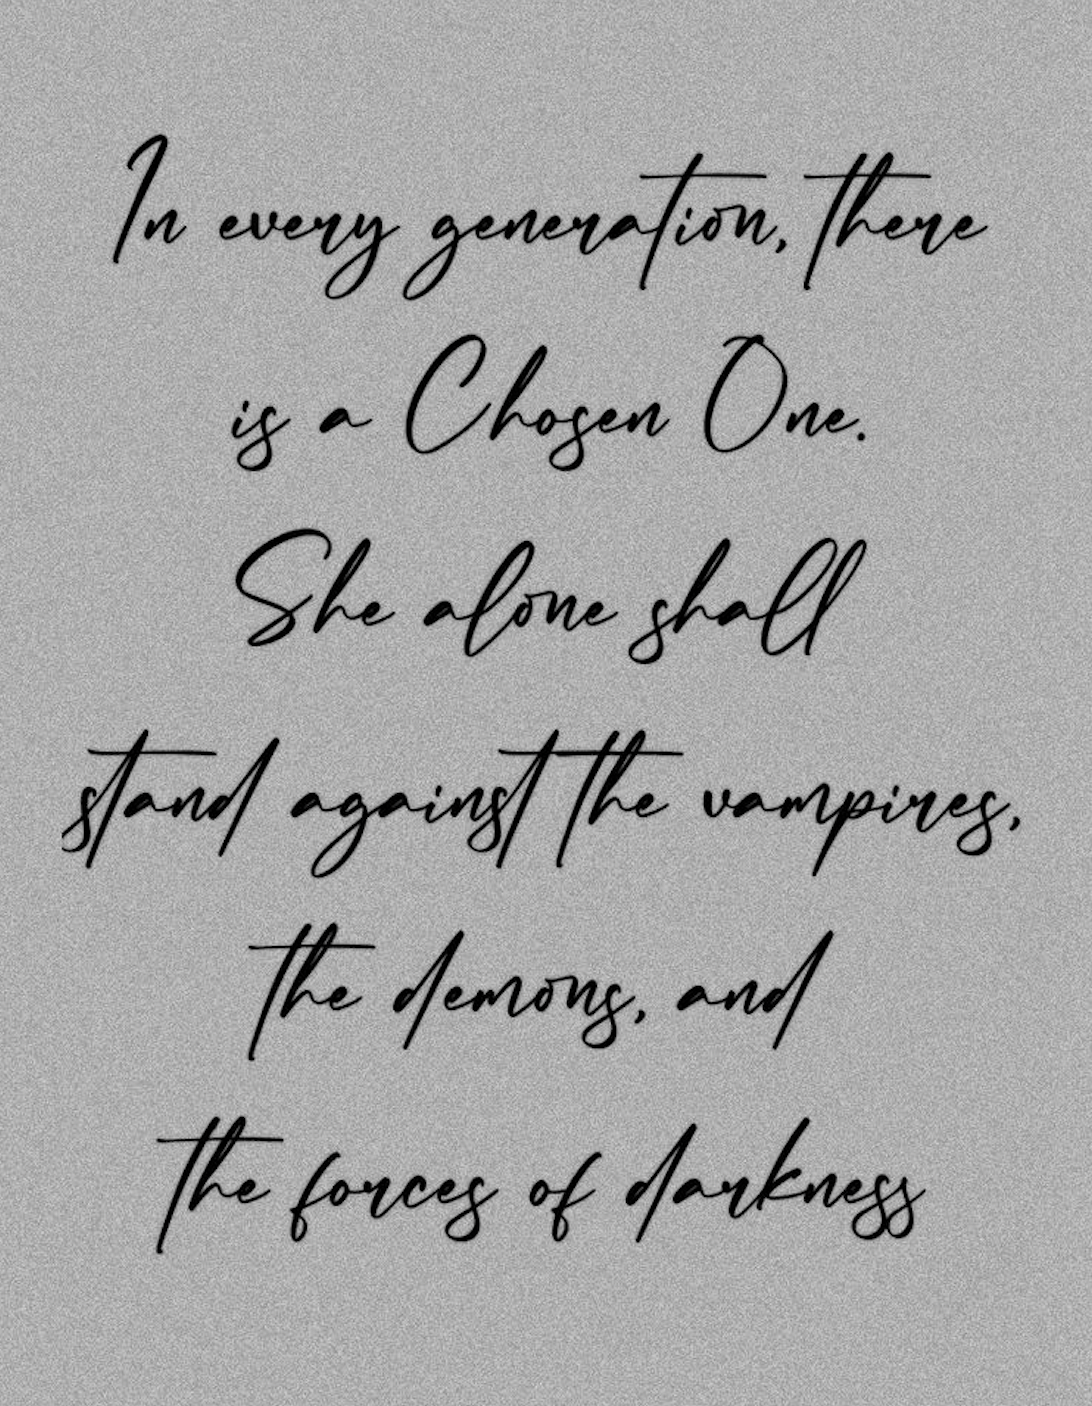 In every generation, there
is a Chosen One.
She alone shall
stand against the vampires,
the demons, and
the forces of darkness